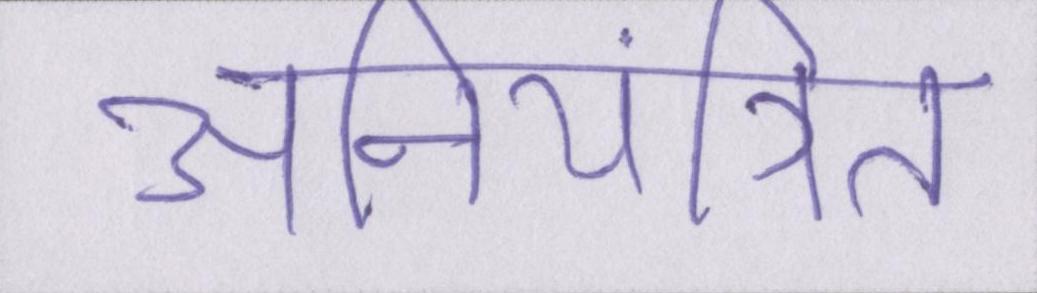 अनियंत्रित